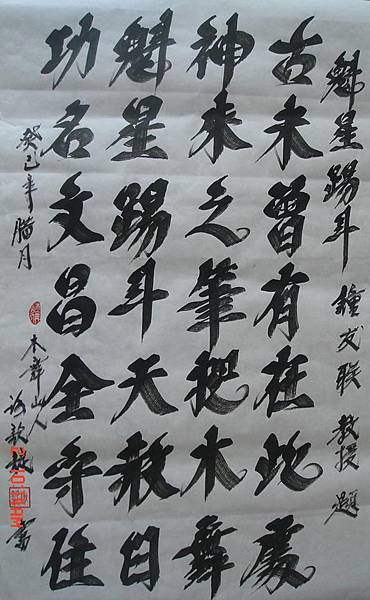 魁星踢斗 鐘友联教授題
古未曾有在此處
神來之筆把木舞
魁星踢斗天赦日
功名文昌全守住
癸巳年臘月
山人
書